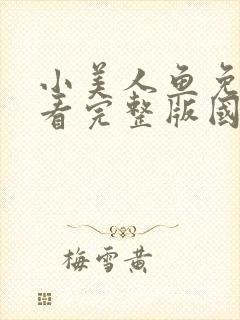 小美人鱼免
看完整版國
梅雪黄